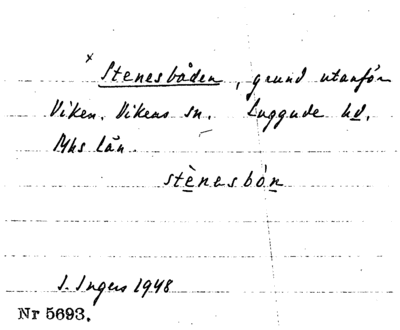 × Stenesbåden, grund utanför
Viken. Vikens sn. Luggude hd.
Mhs län.
stènesbón
I. Ingers 1948
Nr 5693.